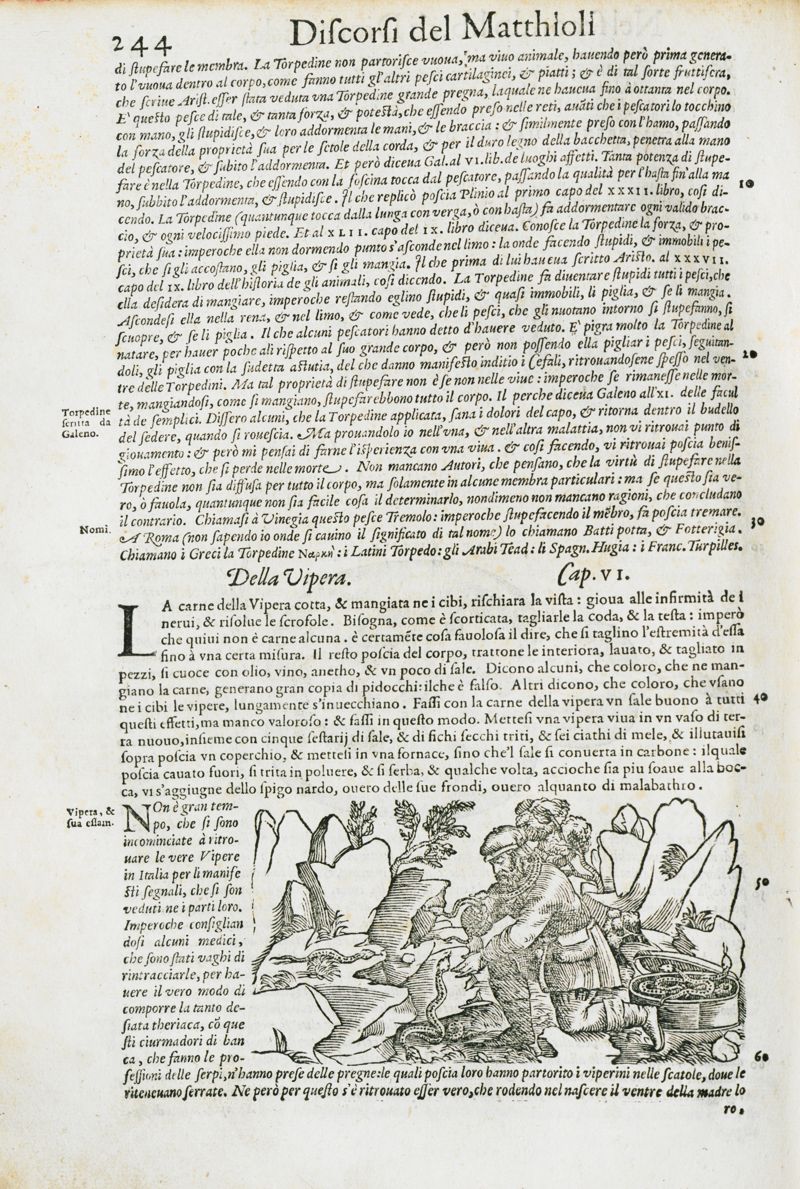 244 Discorsi del Matthioli
di stupefare le membra. La Torpedine non partorisce vuoua, ma viuo animale, hauendo però prima genera-
to l'vuoua dentro al corpo, come fanno tutti gl'altri pesci cartilaginei, & piatti; & è di tal sorte fruttifera,
che scriue Arist. esser stata veduta vna Torpedine grande pregna, laquale ne haueua fino à ottanta nel corpo.
E' questo pesce di tale, & tanta forza, & potestà, che essendo preso nelle reti, auāti che i pescatori lo tocchino
con mano, gli stupidisce, & loro addormenta le mani, & le braccia: & similmente preso con l'hamo, passando
la forza della proprietà sua per le setole della corda, & per il duro legno della bacchetta, penetra alla mano
del pescatore, & subito l'addormenta. Et però diceua Gal. al VI. lib. de luoghi affetti. Tanta potenza di stupe-
fare è nella Torpedine, che essendo con la foscina tocca dal pescatore, passando la qualità per l'hasta fin'alla ma 10
no, subbito l'addormenta, & stupidisce. Il che replicò poscia Plinio al primo capo del XXXII. libro, cosi di-
cendo. La Torpedine (quantunque tocca dalla lunga con verga, ò con hasta) fa addormentare ogni valido brac-
cio, & ogni velocissimo piede. Et al XLII. capo del IX. libro diceua. Conosce la Torpedine la forza, & pro-
prietà sua: imperoche ella non dormendo punto s'asconde nel limo: la onde facendo stupidi, & immobili i pe-
sci, che si gli accostano, gli piglia, & si gli mangia. Il che prima di lui haueua scritto Aristo. al XXXVII.
capo del IX. libro dell'historia de gli animali, cosi dicendo. La Torpedine fa diuentare stupidi tutti i pesci, che
ella desidera di mangiare, imperoche restando eglino stupidi, & quasi immobili, li piglia, & se li mangia.
Ascondesi ella nella rena, & nel limo, & come vede, che li pesci, che gli nuotano intorno si stupefanno, si
scuopre, & se li piglia. Il che alcuni pescatori hanno detto d'hauere veduto. E' pigra molto la Torpedine al
natare, per hauer poche ali rispetto al suo grande corpo, & però non possendo ella pigliar i pesci, seguitan-
doli, gli piglia con la sudetta astutia, del che danno manifesto inditio i Cefali, ritrouandosene spesso nel ven- 20
tre delle Torpedini. Ma tal proprietà di stupefare non è se non nelle viue: imperoche se rimanesse nelle mor-
te, mangiandosi, come si mangiano, stupefarebbono tutto il corpo. Il perche diceua Galeno all'XI. delle facul
Torpedine scritta da Galeno.
tà de semplici. Dissero alcuni, che la Torpedine applicata, sana i dolori del capo, & ritorna dentro il budello
del sedere, quando si rouescia. Ma prouandolo io nell'vna, & nell'altra malattia, non vi ritrouai punto di
giouamento: & però mi pensai di farne l'isperienza con vna viua. & cosi facendo, vi ritrouai poscia benis-
simo l'effetto, che si perde nelle morte. Non mancano Autori, che pensano, che la virtù di stupefare nella
Torpedine non sia diffusa per tutto il corpo, ma solamente in alcune membra particulari: ma se questo sia ve-
ro, ò fauola, quantunque non sia facile cosa il determinarlo, nondimeno non mancano ragioni, che concludano
il contrario. Chiamasi à Vinegia questo pesce Tremolo: imperoche stupefacendo il mēbro, fa poscia tremare. 30
Nomi.
A Roma (non sapendo io onde si cauino il significato di tal nome) lo chiamano Batti potta, & Fotterigia.
Chiamano i Greci la Torpedine Ναρκὴ: i Latini Torpedo: gli Arabi Tead: li Spagn. Hugia: i Franc. Turpilles.
Della Vipera. Cap. VI.
LA carne della Vipera cotta, & mangiata ne i cibi, rischiara la vista: gioua alle infirmità de i
nerui, & risolue le scrofole. Bisogna, come è scorticata, tagliarle la coda, & la testa: imperò
che quiui non è carne alcuna. è certamēte cosa fauolosa il dire, che si taglino l'estremità d'essa
fino à vna certa misura. Il resto poscia del corpo, trattone le interiora, lauato, & tagliato in
pezzi, si cuoce con olio, vino, anetho, & vn poco di sale. Dicono alcuni, che coloro, che ne man-
giano la carne, generano gran copia di pidocchi: ilche è falso. Altri dicono, che coloro, che vsano
ne i cibi le vipere, lungamente s'inuecchiano. Fassi con la carne della vipera vn sale buono à tutti 40
questi effetti, ma manco valoroso: & fassi in questo modo. Mettesi vna vipera viua in vn vaso di ter-
ra nuouo, insieme con cinque sestarij di sale, & di fichi secchi triti, & sei ciathi di mele, & illutauisi
sopra poscia vn coperchio, & mettesi in vna fornace, sino che'l sale si conuerta in carbone: ilquale
poscia cauato fuori, si trita in poluere, & si serba, & qualche volta, accioche sia piu soaue alla boc-
ca, vi s'aggiugne dello spigo nardo, ouero delle sue frondi, ouero alquanto di malabathro.
Vipera, & sua essam.
NOn è gran tem-
po, che si sono
incominciate à ritro-
uare le vere Vipere
in Italia per li manife
sti segnali, che si son 50
veduti ne i parti loro.
Imperoche consiglian
dosi alcuni medici,
che sono stati vaghi di
rintracciarle, per ha-
uere il vero modo di
comporre la tanto de-
siata theriaca, cō que
sti ciurmadori di ban
ca, che fanno le pro- 60
fessioni delle serpi, n'hanno prese delle pregne: le quali poscia loro hanno partorito i viperini nelle scatole, doue le
riteneuano serrate. Ne però per questo s'è ritrouato esser vero, che rodendo nel nascere il ventre della madre lo
ro,